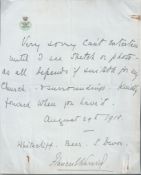 Very sorry can't entertain
until I see sketch or photo -
as all depends if suitable for my
Church & surroundings - kindly
forward when you have it.
August 29th 1918.
Whitecliff. Beer. S. Devon.